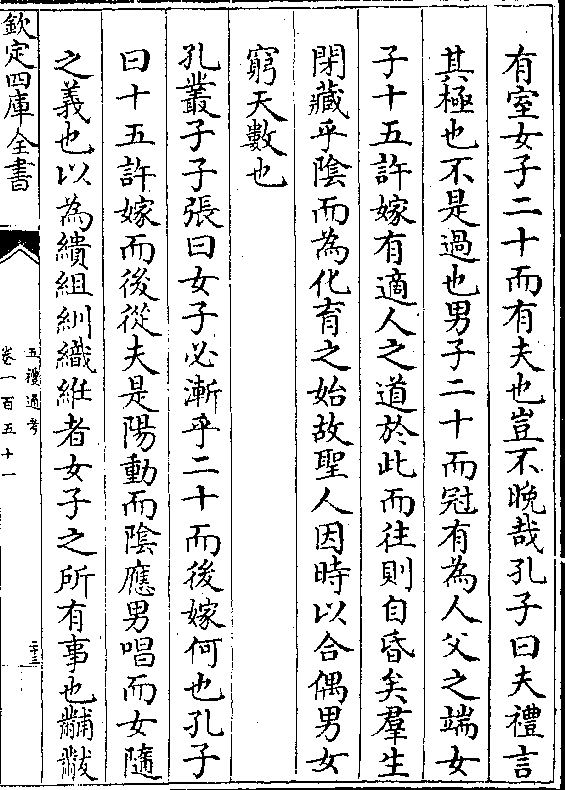 有室女子二十而有夫也豈不晚哉孔子曰夫禮言
其極也不是過也男子二十而冠有為人父之端女
子十五許嫁有適人之道於此而往則自昏矣羣生
閉藏乎陰而為化育之始故聖人因時以合偶男女
窮天數也
孔叢子子張曰女子必漸乎二十而後嫁何也孔子
曰十五許嫁而後從夫是陽動而陰應男唱而女隨
之義也以為繢組紃織紝者女子之所有事也黼黻
欽定四庫全書
五禮通考
卷一百五十一
二十三